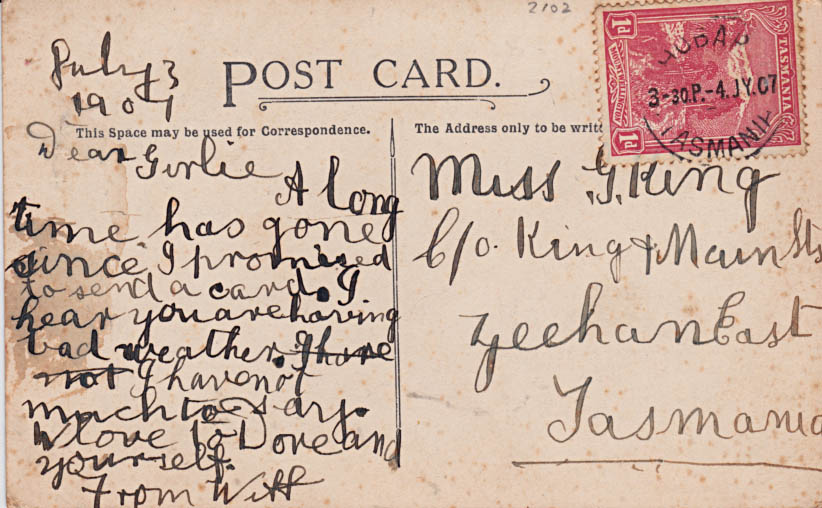 2102
July 3
1907
POST CARD.
This Space may be used for Correspondence.
Dear Girlie
A long
time has gone
since I promised
to send a card. I
hear you are having
bad weather. I have
not I have not
much to say.
love to Dove and
yourself.
From Will
The Address only to be writ
1d
TASMANIA
1d
HOBAR
3-30.P.-4.JY.07
TASMANIA
Miss G. King
C/o. King & Main Sts
Zeehan East
Tasmania